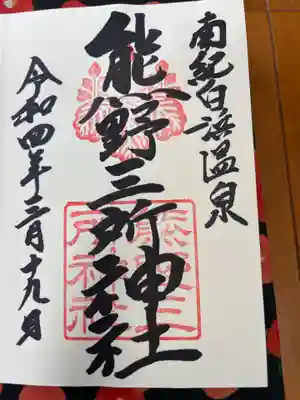 南紀白浜温泉
熊野三所神社
令和四年二月十九日
熊野三所神社